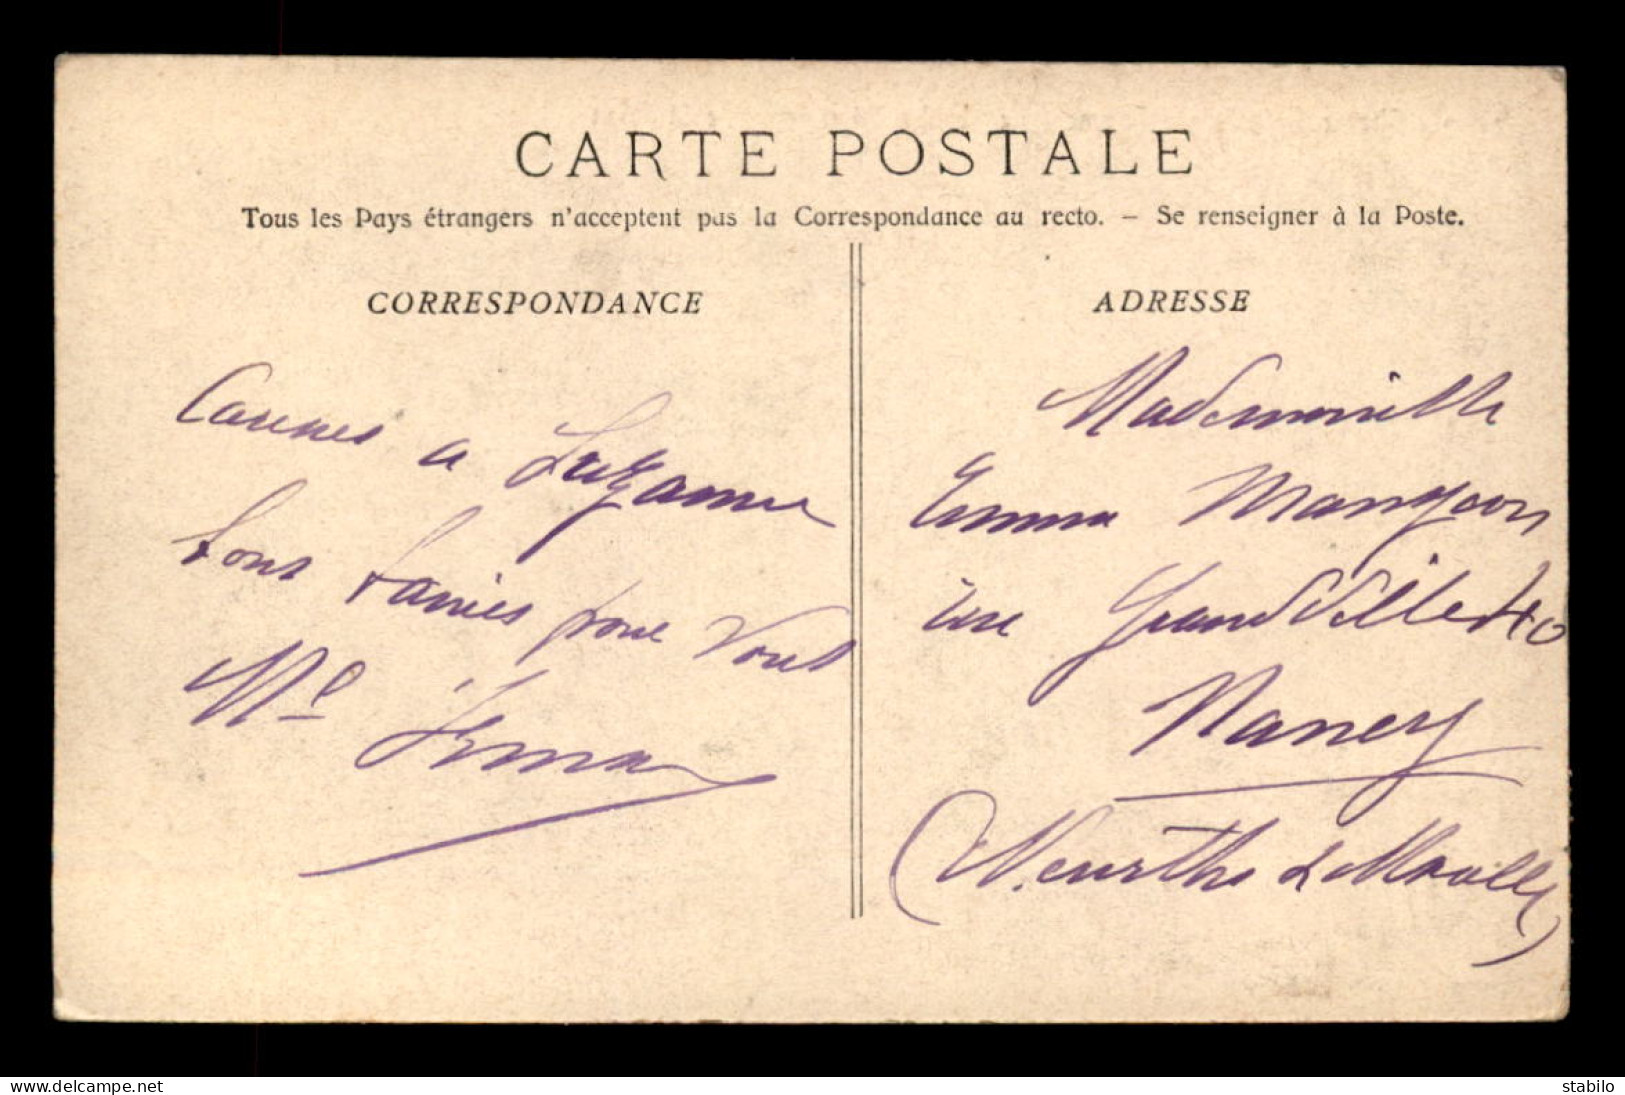 CARTE POSTALE
Tous les Pays étrangers n'acceptent pas la Correspondance au recto. – Se renseigner à la Poste.
CORRESPONDANCE
a Suzanne
pour vous
M^e Irma
ADRESSE
Mademoiselle
Emma
Grandville 40
Nancy
(Meurthe & Moselle)
www.delcampe.net
stabilo